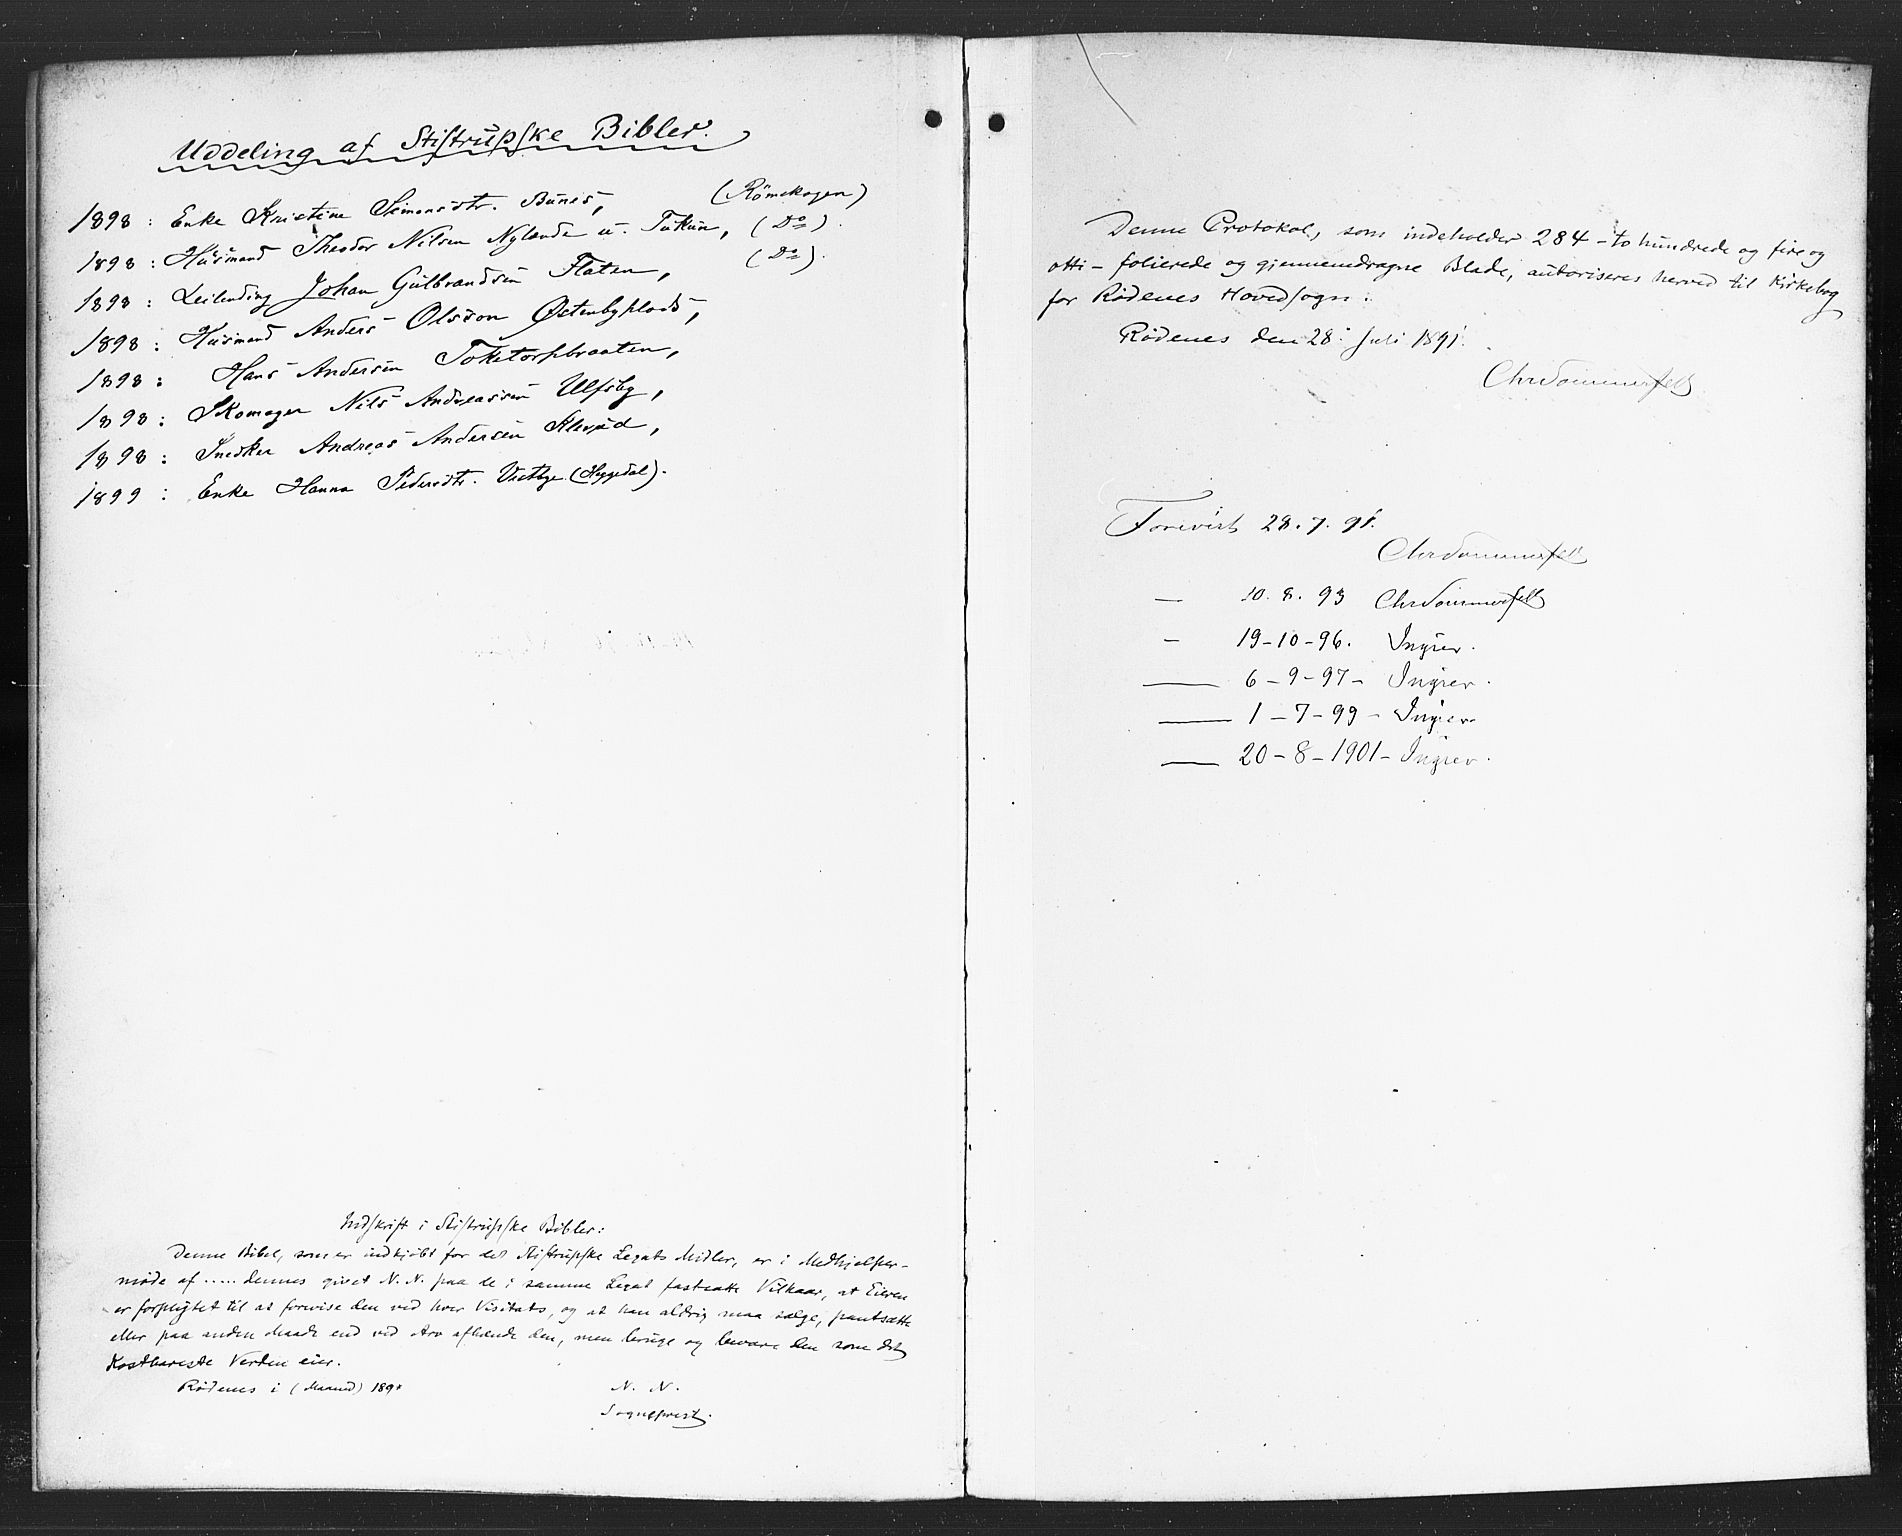 Uddeling af Stistrupske Bibler.
1898: Enke Kristine Simensdtr. Bunes, (Römskogen)
1898: Husmand Theodor Nilsen Nylende u. Tukun, (Do).
1898: Leilending Johan Gulbrandsen Flaten, (Do).
1898: Husmand Anders Olsson Østenbyplads,
1898: Hans Andersen Toketorpbraaten,
1898: Skomager Nils Andreassen Ulfsby,
1898: Snedker Andreas Andersen Klerud,
1899: Enke Hanna Pedersdtr. Vestbye (Heggedal).
Indskrift i Stistrupske Bibler:
Denne Bibel, som er indkjöbt for det Stistrupske Legats Midler, er i Medhjelper-
møde af ..... dennes givet N. N. paa de i samme Legat fastsatte Vilkaar, at Eieren
er forpligtet til at forevise den ved hver Visitats, og at han aldrig maa sælge, pantsætte
eller paa anden Maade end ved Arv afhænde den, men bruge og bevare den som det
Kostbareste Verden eier.
Rödenes i (Maaned) 189*
N. N.
Sogneprest.
Denne Protokol, som indeholder 284 - to hundrede og fire og
otti - folierede og gjennemdragne Blade, autoriseres herved til Kirkebog
for Rödenes Hovedsogn.
Rödenes den 28. Juli 1891.
Chr Sommerfelt
Forevist 28. 7. 91.
Chr Sommerfelt
— 10. 8. 93 Chr Sommerfelt
— 19-10-96. Ingier.
— 6-9-97- Ingier.
— 1-7-99- Ingier
— 20-8-1901- Ingier.